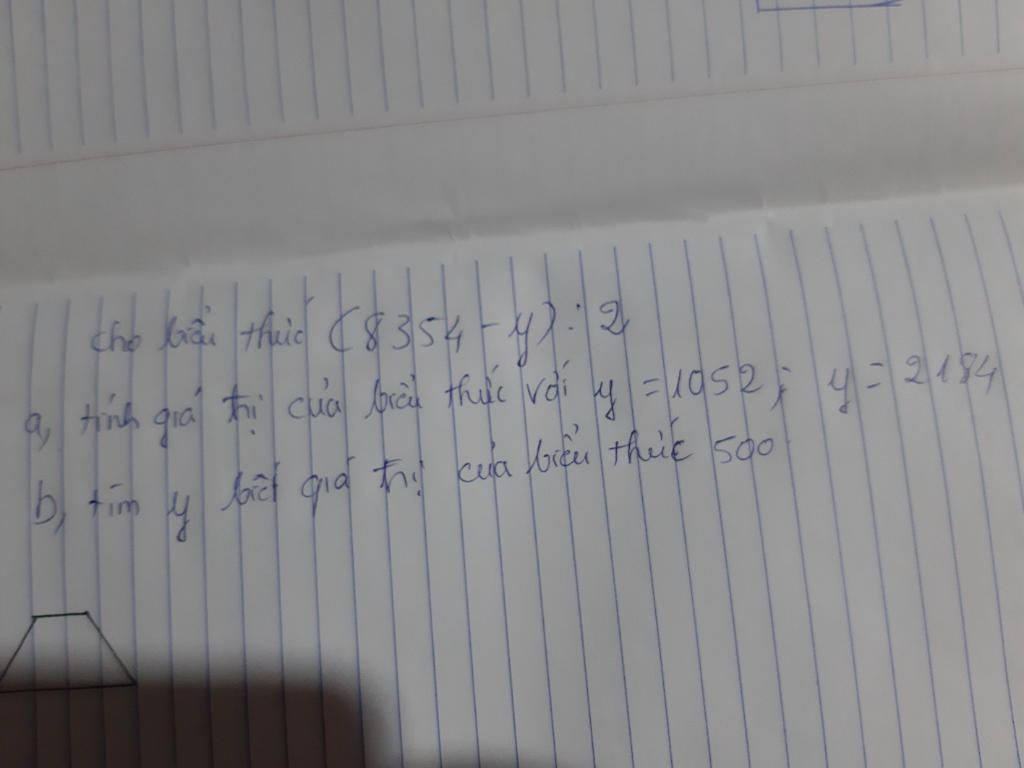 cho biểu thức (8354 - y) : 2
a, tính giá trị của biểu thức với y = 1052; y = 2184
b, tìm y biết giá trị của biểu thức 500